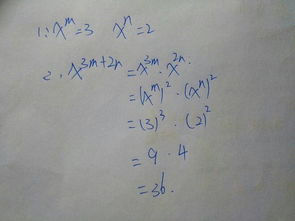 1、x^m=3 x^n=2
2、x^{3m+2n}=x^{3m}·x^{2n}.
=(x^m)^2·(x^n)^2
=(3)^3·(2)^2
=9·4
=36.